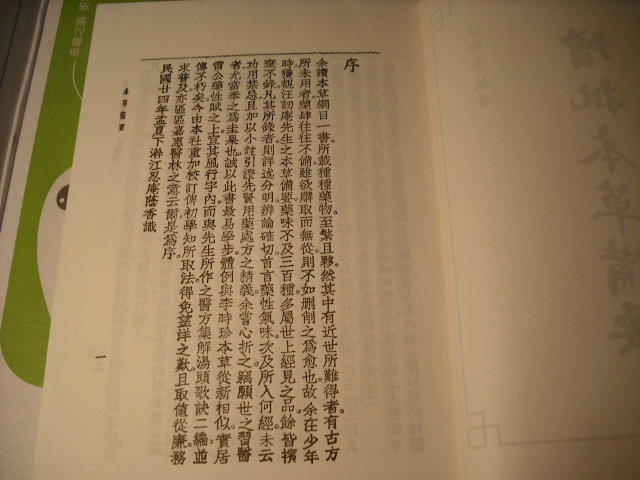 序
余讀本草綱目一書。所載種種藥物。至繁且夥。然其中有近世所難得者。有古方
所未用者。藥肆往往不備。雖欲購取而無從。則不如删削之爲愈也。故余在少年
時。獲觀汪訒庵先生之本草備要。藥味不及三百種。多屬世上經見之品。餘皆擯
棄不錄。凡其所錄者。則詳逃分明。辨論確切。首言藥性氣味。次及所入何經。未云
功用禁忌。且加以小註。引證先賢用藥處方之精義。余嘗心折之。竊願世之習醫
者。尤當奉之爲圭臬也。誠以此書最易學步。體例與李時珍本草從新相似。實居
雷公藥性賦之上。宜其風行宇內。而與先生所作之醫方集解湯頭歌訣二編。並
傳不朽矣。今由本社重加校訂。俾初學知所取法。得免望洋之歎。且取値從廉。務
求普及。亦區區嘉惠醫林之意云爾。是爲序。
民國廿四年孟夏下澣江忍庵蔭香識
本草備要
一
增批本草備要